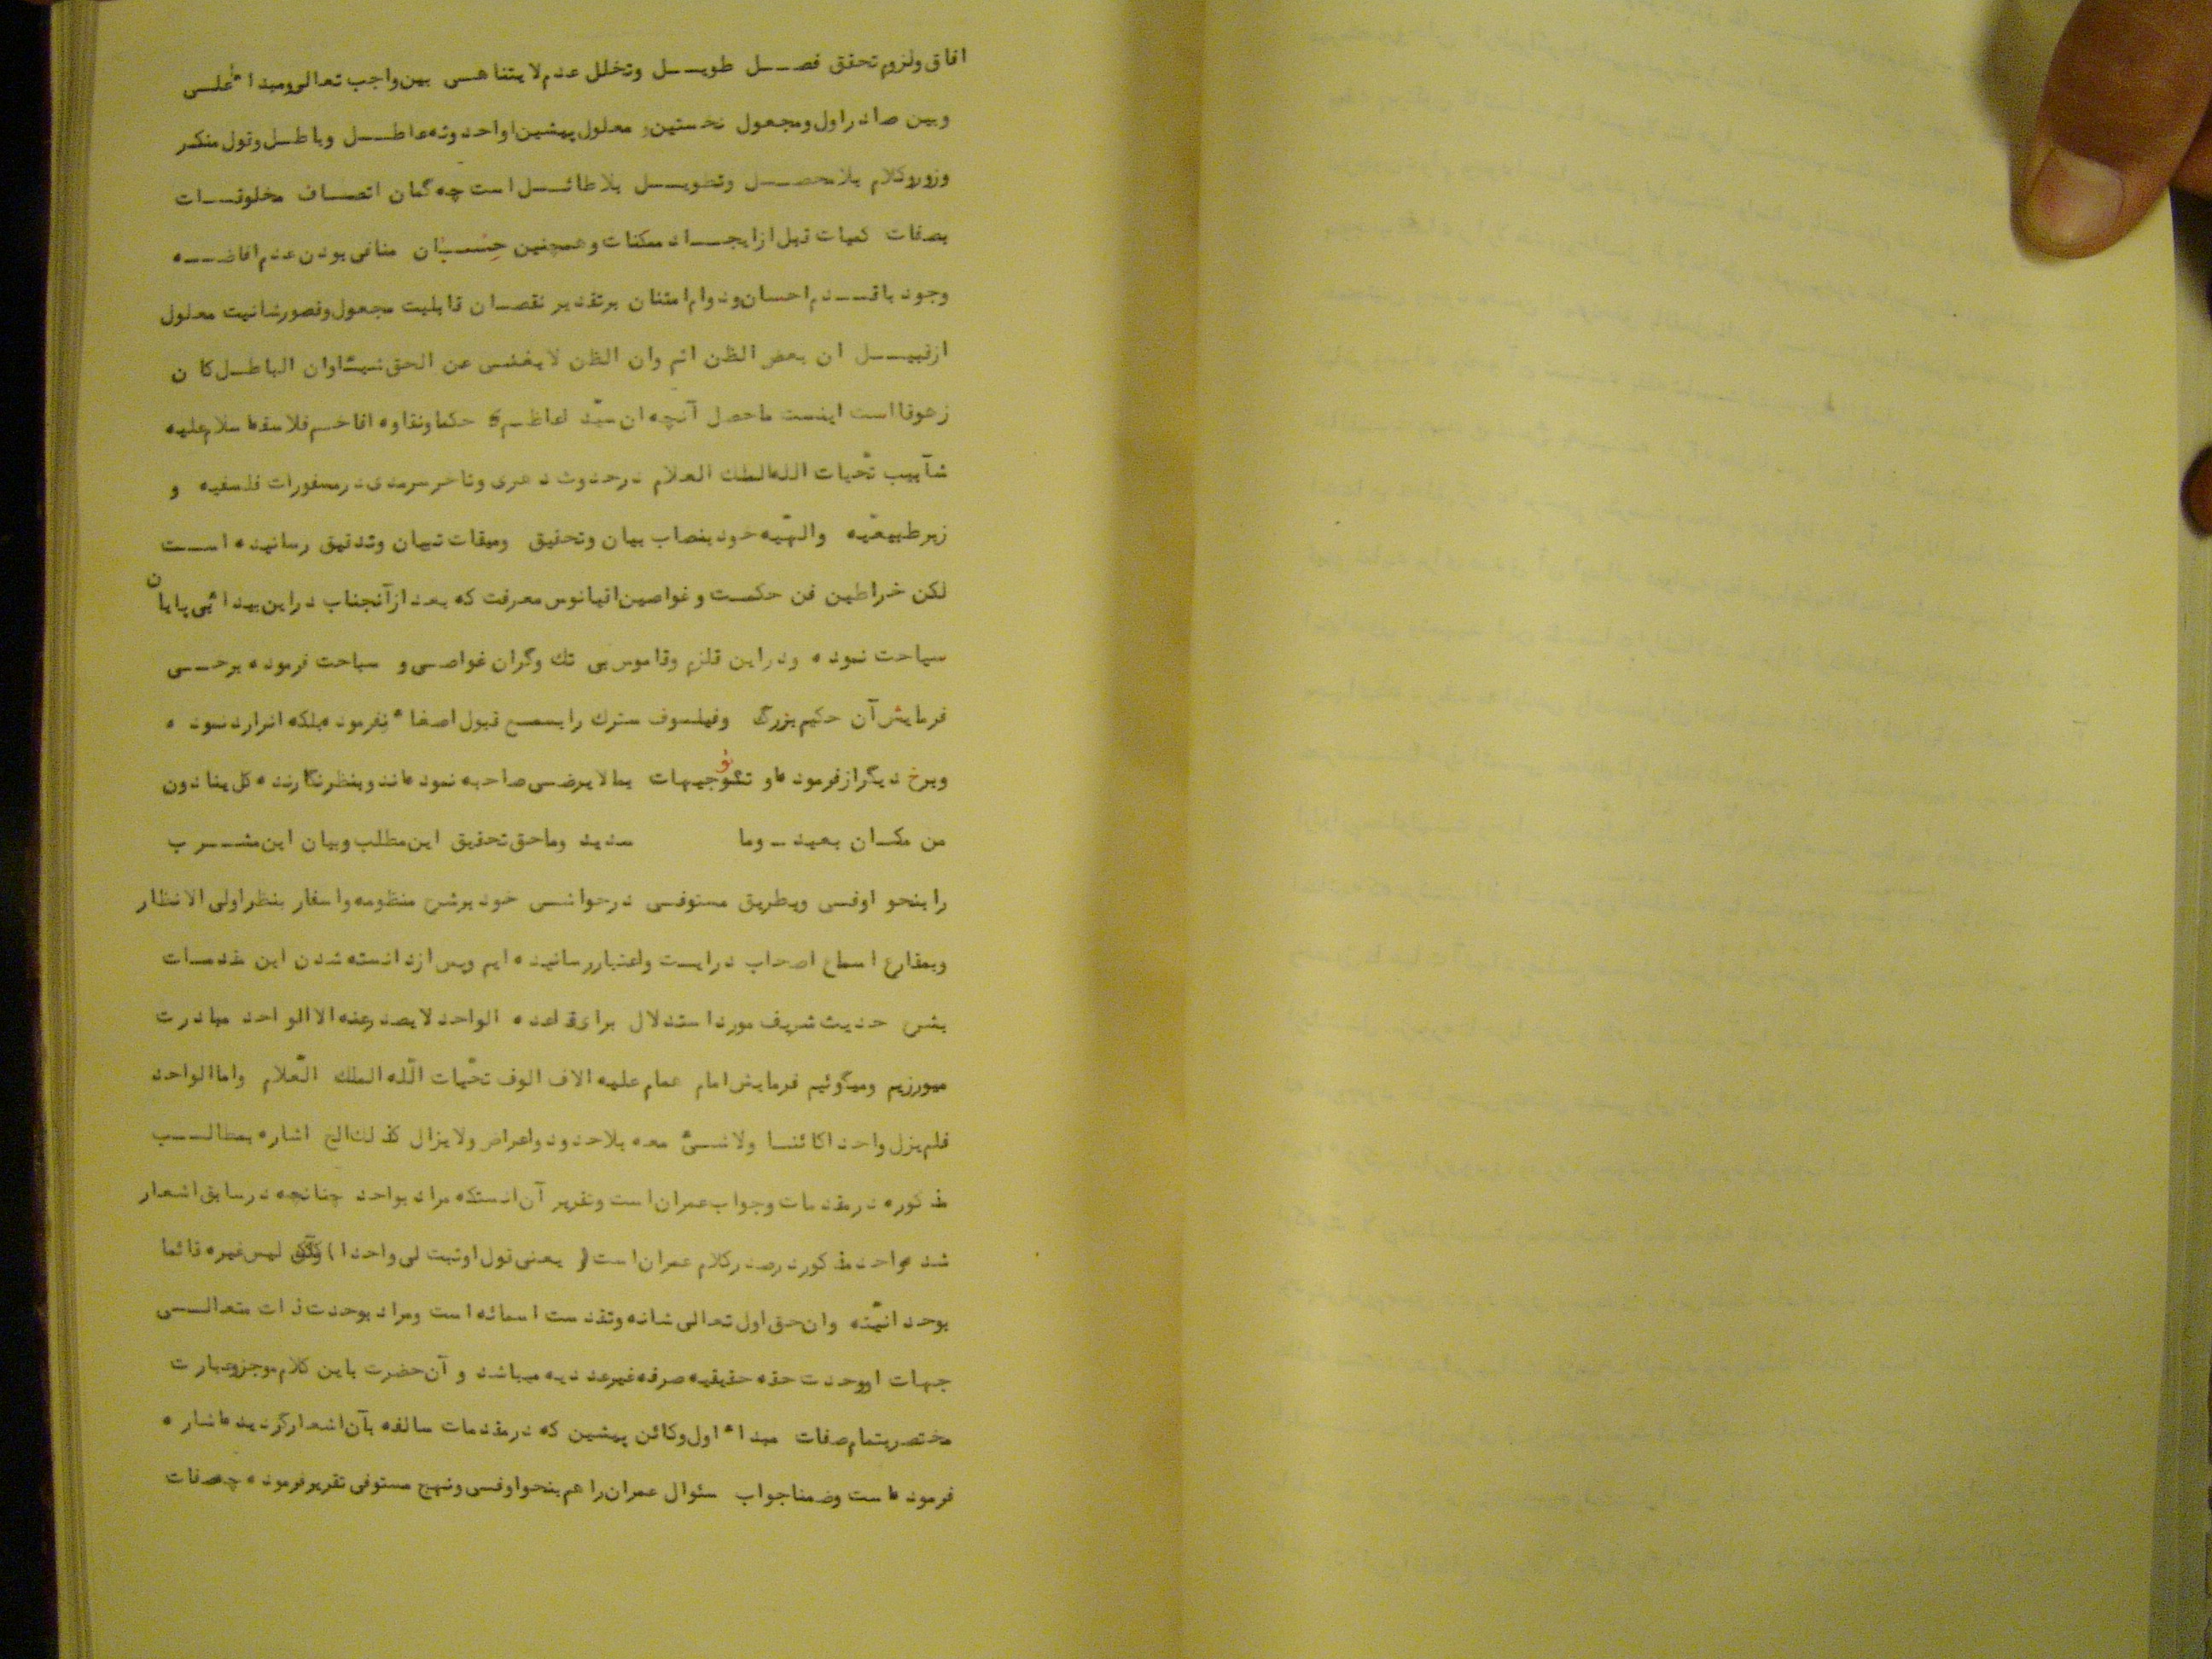 افاق ولزوم تحقق فصل طویل وتخلل عدم لا یتناهی بین واجب تعالی ومبداء علی
وبین صادر اول ومجعول نخستین و معلول پیشین او احدوثه عاطل وباطل وقول منکر
وزور وکلام بلا محصل وتطویل بلا طائل است چه گمان اتصاف مخلوقات
بصفات کمیات قبل از ایجاد ممکنات وهمچنین حسبان منافی بودن عدم افاضه
وجود باقدم احسان ودوام امتنان برتقدیر نقصان قابلیت مجعول وقصور شانیت معلول
ازقبیل ان بعض الظن اثم وان الظن لا یغنی عن الحق شیئا وان الباطل کان
زهوقا است اینست ماحصل آنچه ان سید اعاظم حکما ونقاوه افاخم فلاسفه اسلام علیه
شآبیب تحیات الله الملك العلام درحدوث دهری وتاخر سرمدی درمسفورات فلسفیه و
زبر طبیعیه والهیه خود بنصاب بیان وتحقیق ومیقات تبیان وتدقیق رسانیده است
لکن خراطین فن حکمت و غواصین اقیانوس معرفت که بعد ازآنجناب دراین بیداء بی پایان
سیاحت نموده ودراین قلزم وقاموس بی تك وگران غواصی و سباحت فرموده برخی
فرمایش آن حکیم بزرگ وفیلسوف سترك را بسمع قبول اصغاء نفرموده بلکه انرا ردنموده
وبرخ دیگر از فرموده او توجیهات بما لا یرضی صاحبه نموده اند وبنظر نگارنده کل ینادون
من مکان بعید ـ وما سدید وماحق تحقیق این مطلب وبیان این مشرب
را بنحو اوفی وبطریق مستوفی درحواشی خود برشرح منظومه واسفار بنظر اولی الانظار
وبمقارع اسماع اصحاب درایت واعتبار رسانیده ایم وپس ازدانسته شدن این مقدمات
بشرح حدیث شریف مورد استدلال برای قاعده الواحد لا یصدر عنه الا الواحد مبادرت
میورزیم ومیگوئیم فرمایش امام همام علیه الاف الوف تحیات الله الملك العلام واما الواحد
فلم یزل واحدا کائنا ولا شیئ معه بلاحدود واعراض ولا یزال کذلك الخ اشاره بمطالب
مذکوره درمقدمات وجواب عمران است وتقریر آن انستکه مراد بواحد چنانچه درسابق اشعار
شد واحد مذکور درصدر کلام عمران است ( یعنی قول او تبت لی واحدا ) لیس غیره قائما
بوحدانیته وان حق اول تعالی شانه وتقدست اسمائه است ومراد بوحدت ذات متعالی
جهات او وحدت حقه حقیقیه صرفه غیر عددیه میباشد و آن حضرت باین کلام موجز وعبارت
مختصر بتمام صفات مبداء اول وکائن پیشین که درمقدمات سالفه بآن اشعار گردیده اشاره
فرموده است وضمنا جواب سئوال عمران را هم بنحو اوفی ونهج مستوفی تقریر فرموده چه صفات